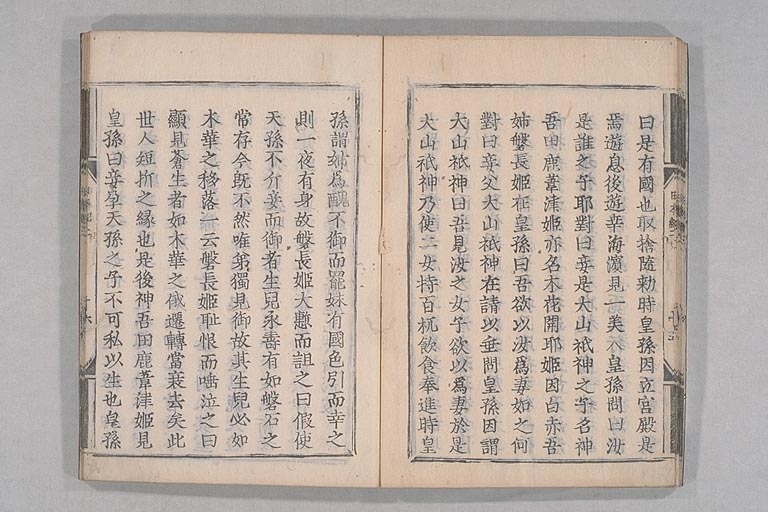 曰是有國也取捨隨勅時皇孫因立宮殿是
焉遊息後遊幸海濱見一美人皇孫問曰汝
是誰之子耶對曰妾是大山祇神之子名神
吾田鹿葦津姬亦名木花開耶姬因白亦吾
姉磐長姬在皇孫曰吾欲以汝為妻如之何
對曰妾父大山祇神在請以垂問皇孫因謂
大山祇神曰吾見汝之女子欲以為妻於是
大山祇神乃使二女持百机飲食奉進時皇
孫謂姉為醜不御而罷妹有國色引而幸之
則一夜有身故磐長姬大慙而詛之曰假使
天孫不斥妾而御者生兒永壽有如磐石之
常存今既不然唯弟獨見御故其生兒必如
木華之移落一云磐長姬恥恨而唾泣之曰
顯見蒼生者如木華之俄遷轉當衰去矣此
世人短折之緣也是後神吾田鹿葦津姬見
皇孫曰妾孕天孫之子不可私以生也皇孫